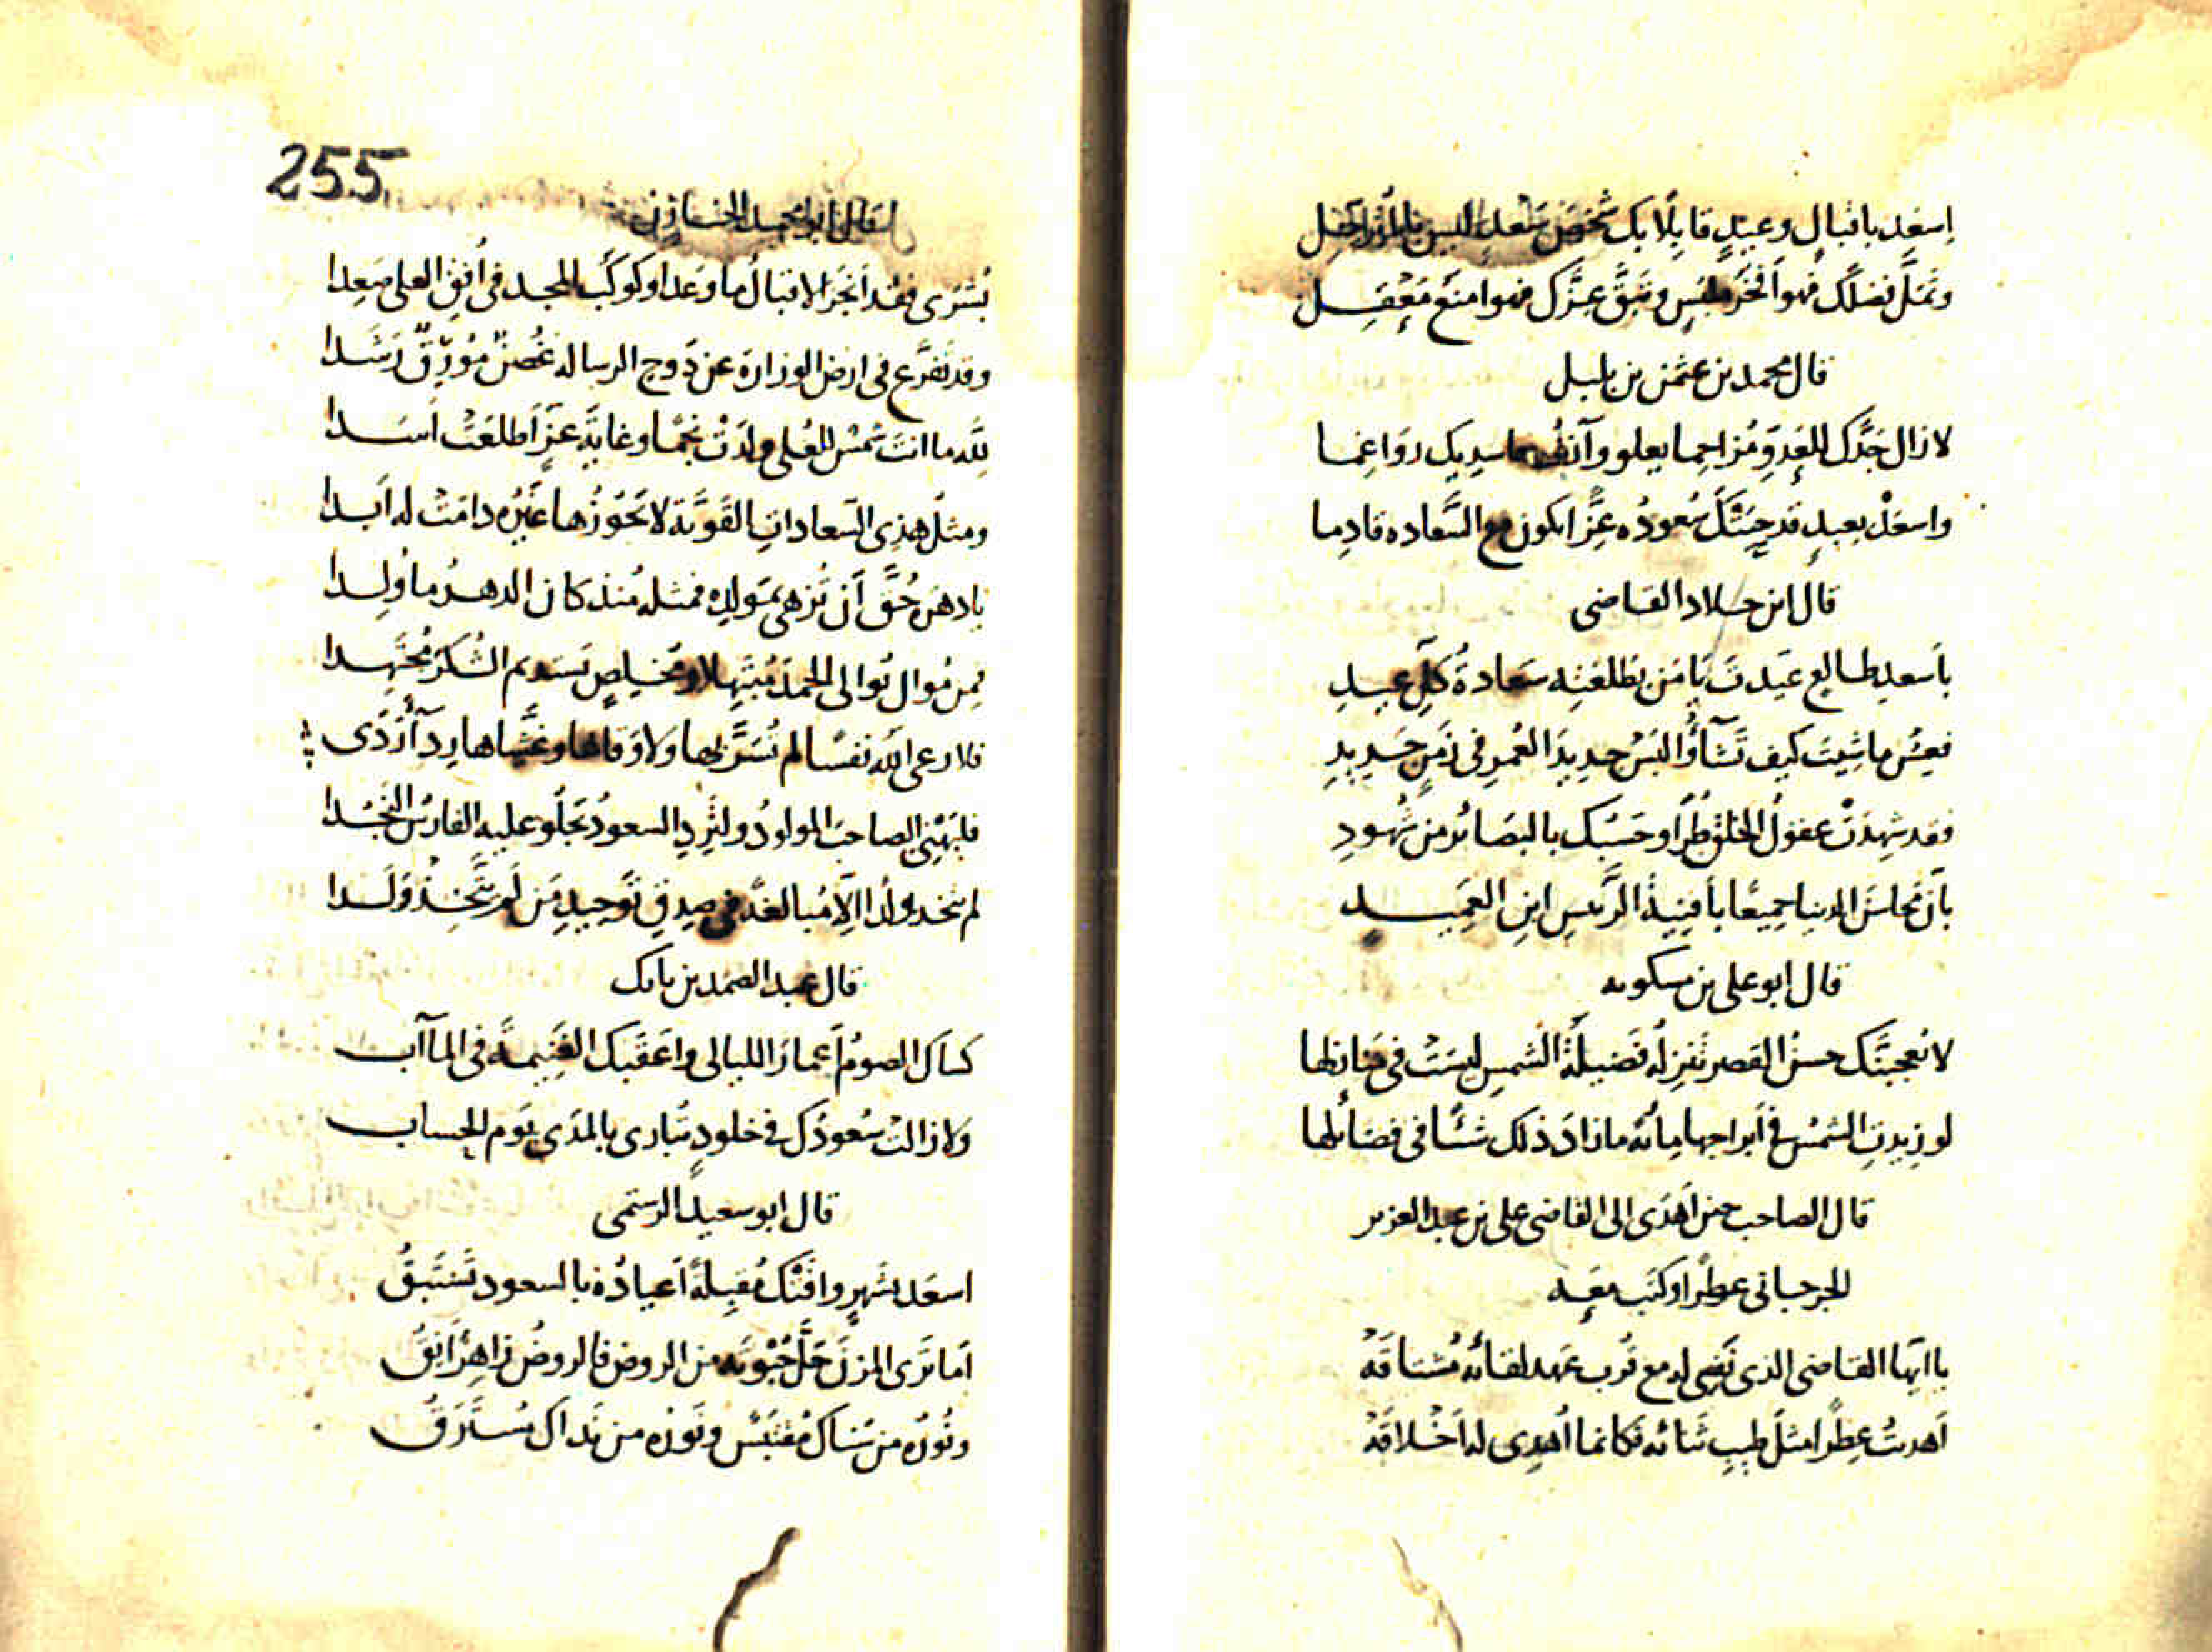 اِسعَد باقبالٍ وعيدٍ قابِلًا بك شخصَ سَعدٍ ليس بالمُترَحِّل
وتَمَلَّ فضلَك فهو أفخَرُ ملبَسٍ وتَبَقَّ عِزَّك فهو امنَعُ مَعقِل
قال محمد بن عثمن بن بلبل
لا زال جَدُّك للعَدوِّ مُزاحِما يعلو وآنُفُ حاسدِيك رواغِما
واسعَدْ بعيدٍ قد حبَتْكَ سُعودُه عِزًّا يكون مع السَّعاده قادِما
قال ابن خلاد القاضى
بأسعدِ طالعٍ عَيَّدتَ يا مَن بطَلعَتِه سَعادةُ كلِّ عيدِ
فعِش ما شِيتَ كيف تَشآءُ البَسْ جديدَ العُمرِ فى زَمَنٍ جَديدِ
فقد شهِدَتْ عقولُ الخلقِ طُرًّا وحَسبُك بالبصَائر من شُهودِ
بأنّ مَحاسنَ الدنيا جميعًا بأفنِيةِ الرَّئيسِ ابنِ العَمِيدِ
قال ابو على بن مسكويه
لا تُعجبَنَّك حسنُ القصر تنزلُه فَضيلةُ الشمسِ ليسَتْ فى مَنازلها
لو زِيدتِ الشمسُ فى أبراجها مِأئه ما زادَ ذلك شئًا فى فضَائلها
قال الصاحب حين اَهدَى الى القاضى على بن عبد العزيز
الجرجانى عِطرًا وكتَب معَه
يا ايّها القاضى الذى نَفسِى له مع قُرب عهد لقائه مُشتاقَه
أهديتُ عِطرًا مثلَ طيبِ ثَنائه فكانما اُهدِى له اَخلاقَه
255
قال ابو محمد الخازن
بُشرَى فقد اَنجَز الاقبالُ ما وعَدا وكوكَبُ المجد فى اُفقِ العلى صَعِدا
وقد تَفرَّع فى ارض الوزارة عن دَوحِ الرساله غُصنٌ مُورِقٌ رَشَدا
للّٰه ما انتَ شمس للعُلى ولَدَتْ نجمًا وغابَةَ عِزٍّ اَطلعَتْ أسَدا
ومثلَ هذِى السَعاداتِ القَوِيَّة لا يحَوزُها غَيرُه دامَتْ له اَبدا
يا دهرُ حُقَّ أن تُزهى بمَولِدِه فمثله مُنذ كان الدهرُ ما وُلِدا
فمِن مُوال يُوالى الحمدَ مُبتَهِلا ومخلِصٍ يَستديم الشكرَ مُجتَهِدا
فلا رعى اللّٰه نفسًا لم تُسَرَّ بها ولا وَقاها وغشَّاها رِدآءُ رَدَى
فليَهنِئ الصاحبَ المولودُ ولتَرِدِ السعودُ تَجلُو عليه الفارسَ النَجُدا
لم يتخذ ولدًا اِلّا مُبالغةً فى صدقِ تَوحيدِ مَن لَم يَتَّخِذْ وَلَدا
قال عبد الصمد بن بابك
كساك الصومُ اَعمارَ الليالى واَعقَبك الغَنِيمةَ فى المآب
ولا زالتْ سُعودُك فى خلودٍ تُبارى بالمدَى يَوم الحساب
قال ابو سعيد الرستمى
اسعَد بشَهرٍ وافَتكَ مُقبلةً اَعيادُه بالسعود تَستَبقُ
أما ترَى المزنَ حَلَّ حُبْوتَه من الروض فالروضُ زاهِرٌ اَنِقُ
ونُورُه من سَناك مُقتبَسٌ ونَورُه من نَداك مُستَرَقُ